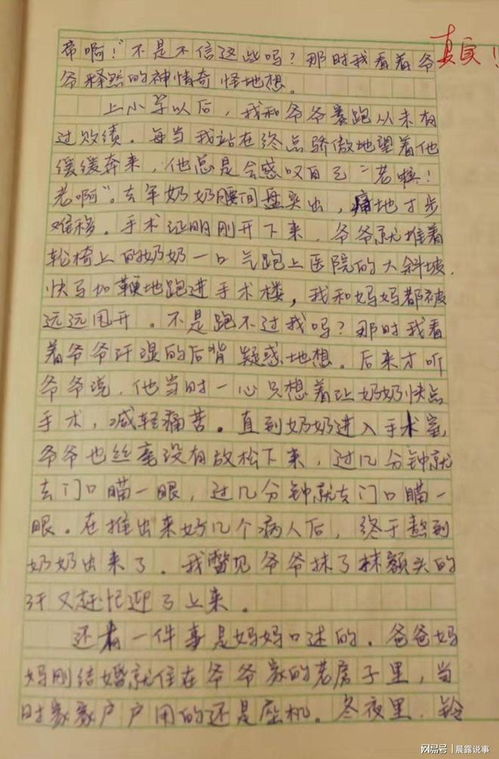 帝啊！”不是不信这些吗？那时我看着爷
爷释然的神情奇怪地想。
真实！
上小学以后，我和爷爷赛跑从未有
过败绩。每当我站在终点骄傲地望着他
缓缓奔来，他总是会感叹自己“老啦！
老啊”。去年奶奶腰间盘突出，痛地寸步
难移。手术证明刚开下来，爷爷就推着
轮椅上的奶奶一口气跑上医院的大斜坡，
快马加鞭地跑进手术楼，我和妈妈都被
远远甩开。不是跑不过我吗？那时我看
着爷爷汗湿的后背疑惑地想。后来才听
爷爷说，他当时一心只想着让奶奶快点
手术，减轻痛苦。直到奶奶进入手术室
爷爷也丝毫没有放松下来，过几分钟就
去门口瞄一眼，过几分钟就去门口瞄一
眼。在推出来好几个病人后，终于熬到
奶奶出来了。我瞥见爷爷抹了抹额头的
汗又赶忙迎了上来。
还有一件事是妈妈口述的。爸爸妈
妈刚结婚就住在爷爷家的老房子里，当
时家家户户用的还是座机。冬夜里，铃
网易号 | 晨露说事